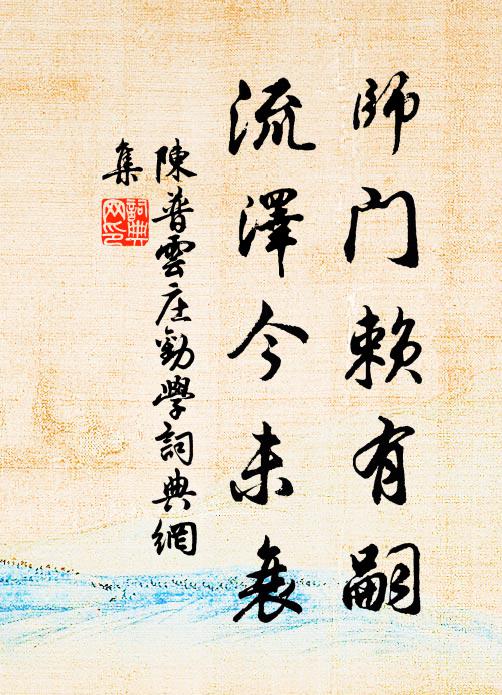 師門賴有嗣
流澤今未衰
陳普雲庄勸學詞典網
集
詞典
网印